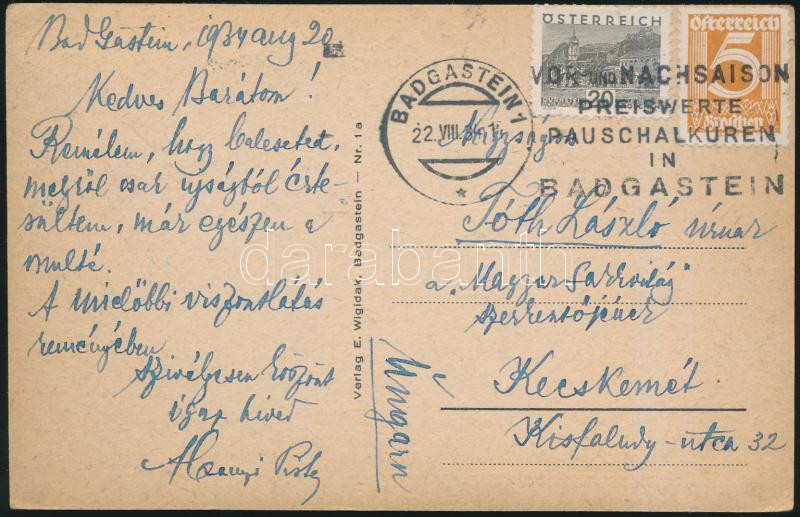 Bad Gastein, 1934 aug 20
Kedves Barátom!
Remélem, hogy baleseted,
melyről csak ujságból érte-
sültem, már egészen a
multé.
A mielőbbi viszontlátás
reményében
szivélyesen köszönt
igaz hived
Verlag E. Wigidak, Badgastein — Nr. 1a
ÖSTERREICH
20
Österreich
5
Groschen
BADGASTEIN 1
22.VIII.34
VOR- UND NACHSAISON
PREISWERTE
PAUSCHALKUREN
IN
BADGASTEIN
Nagyságos
Tóth László úrnak
a „Magyar Sakkvilág"
szerkesztőjének
Kecskemét
Kisfaludy-utca 32
Ungarn
darabanth